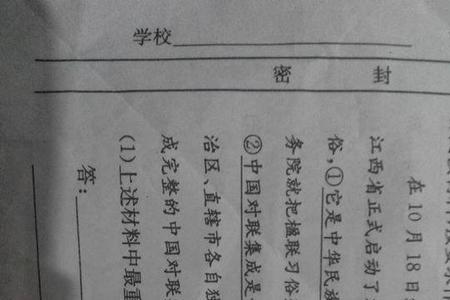 学校
密 封
在10月18日
江西省正式启动了
俗,①它是中华民族
务院就把楹联习俗
②中国对联集成是
治区、直辖市各自独
成完整的中国对联
(1)上述材料中最重
答: